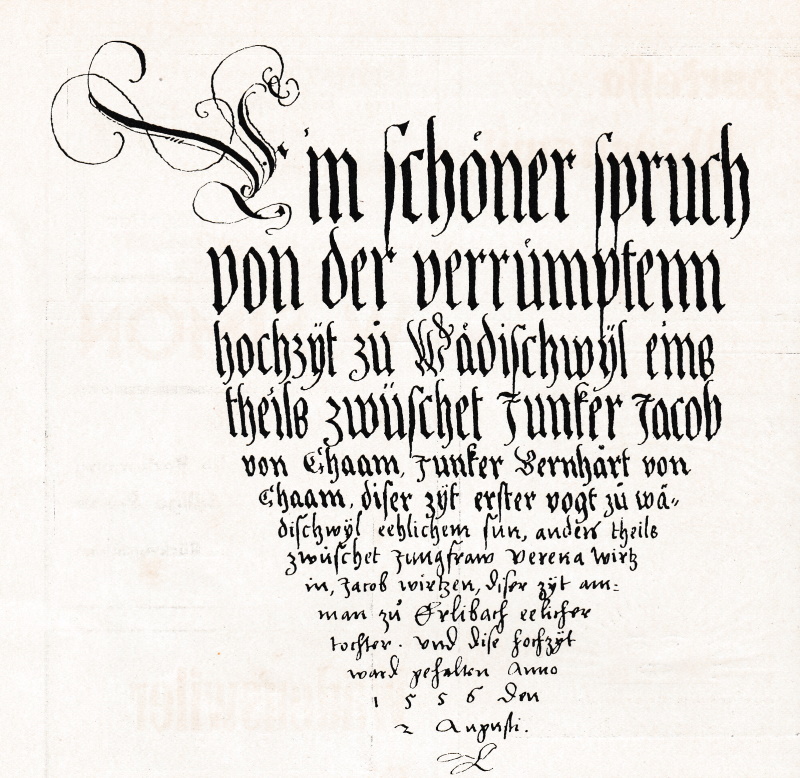 Ein schöner spruch
von der verrümptenn
hochzÿt zů Wädischwÿl eins
theils zwüschet Junker Jacob
von Chaam, Junker Bernhart von
Chaam, diser zÿt erster vogt zů wä-
dischwÿl eehlichem sun, anders theils
zwüschet Jungfraw Verena Wirtz
in, Jacob wirtzen, diser zÿt am-
man zů Erlibach eelicher
tochter. Und dise hochzÿt
ward gehalten Anno
1 5 5 6 den
2 Augusti.